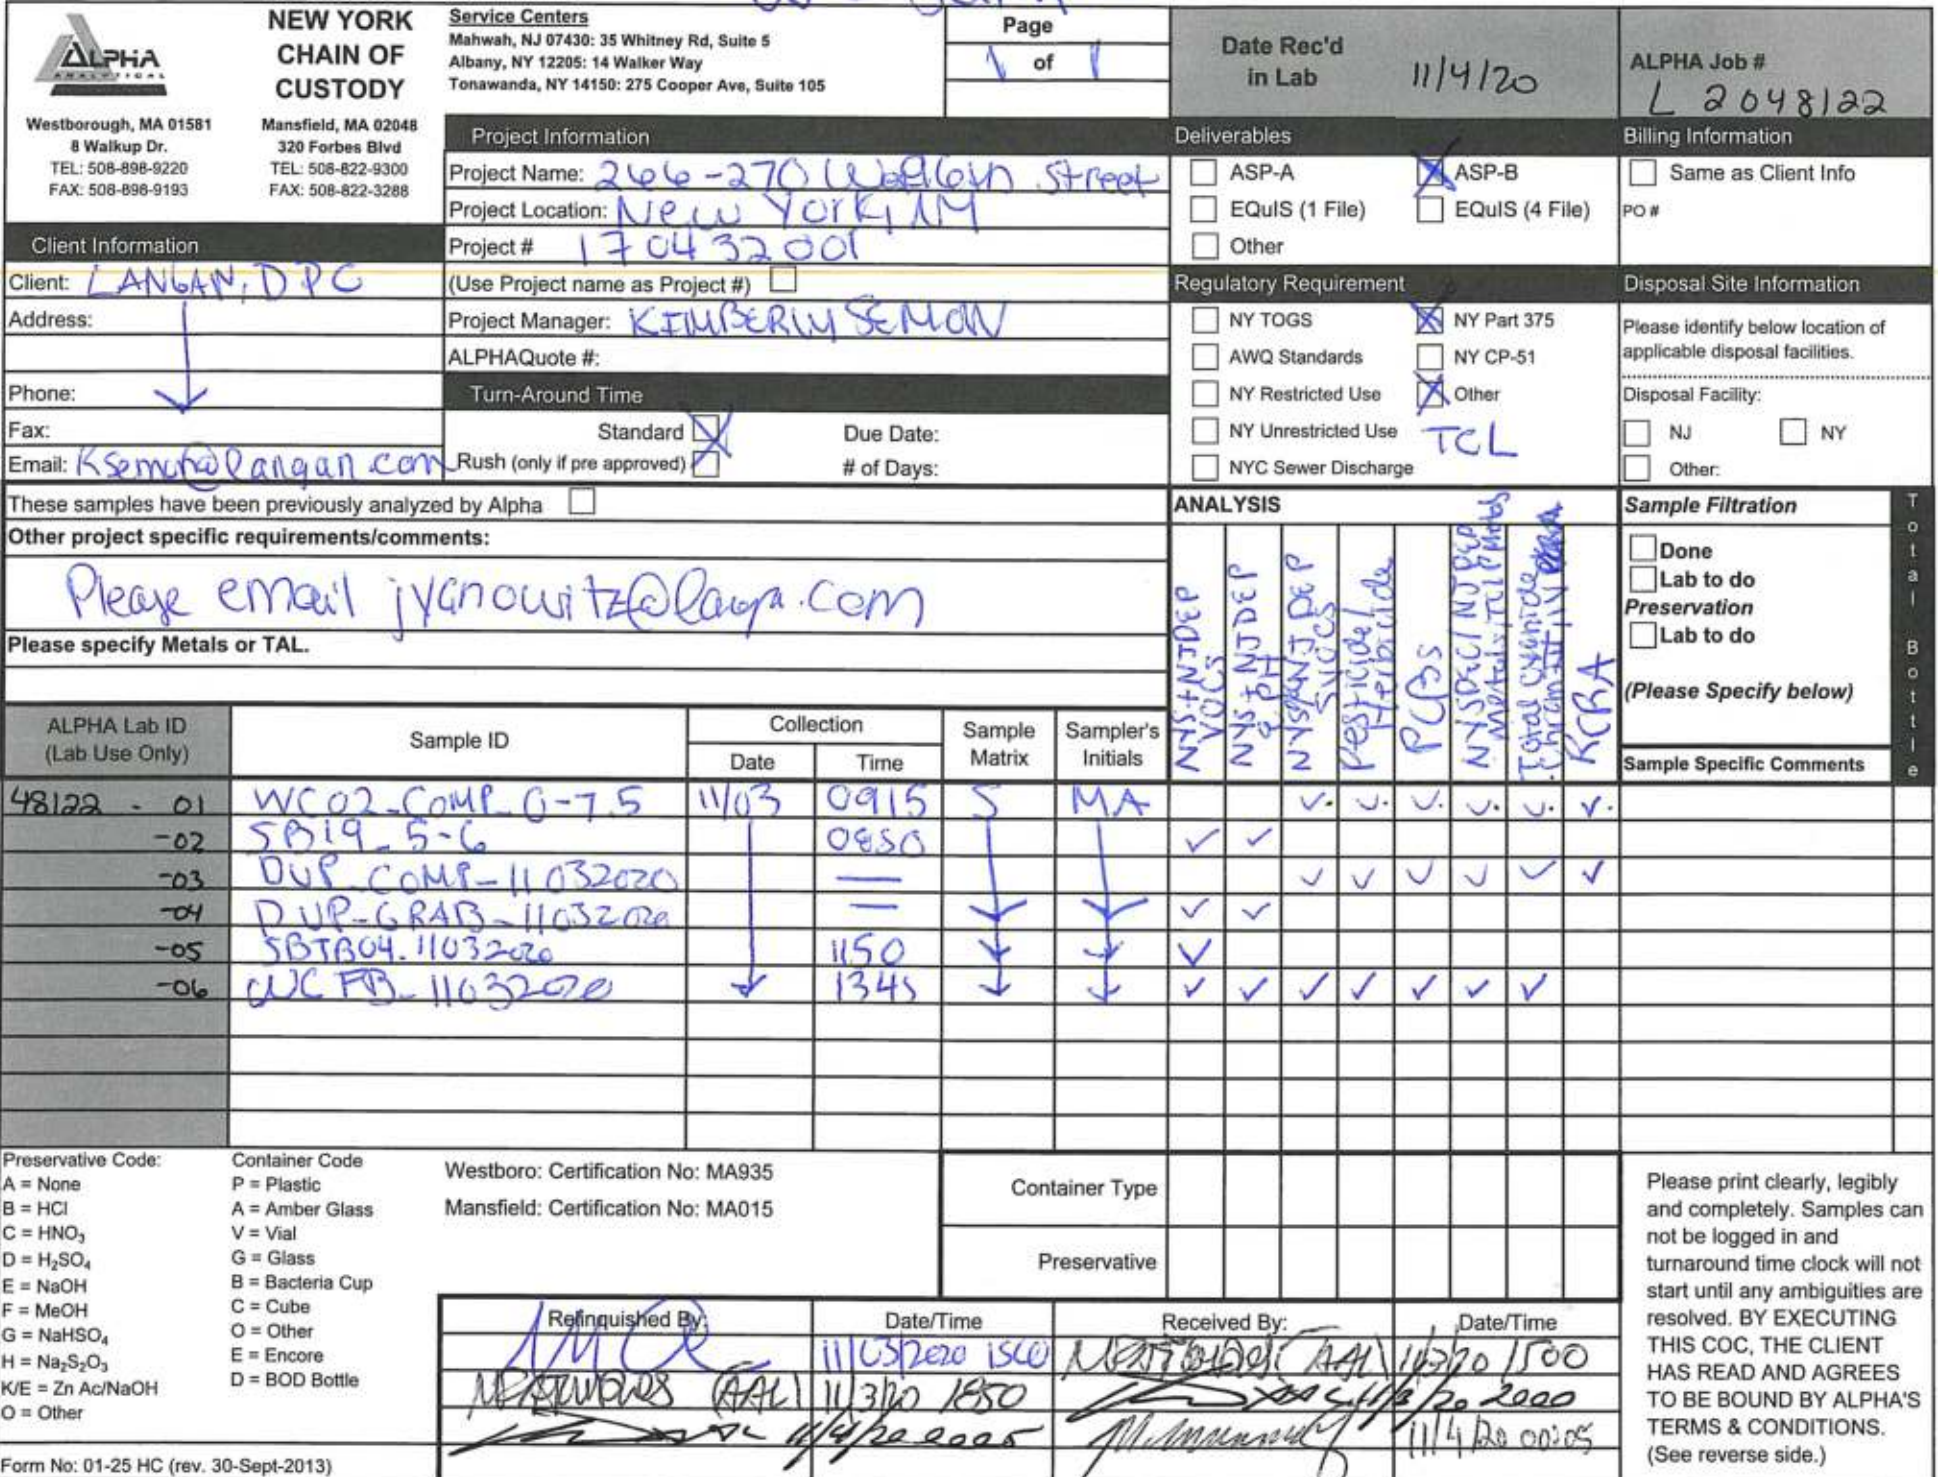 ALPHA
ANALYTICAL
NEW YORK
CHAIN OF
CUSTODY
Westborough, MA 01581
8 Walkup Dr.
TEL: 508-898-9220
FAX: 508-898-9193
Mansfield, MA 02048
320 Forbes Blvd
TEL: 508-822-9300
FAX: 508-822-3288
Service Centers
Mahwah, NJ 07430: 35 Whitney Rd, Suite 5
Albany, NY 12205: 14 Walker Way
Tonawanda, NY 14150: 275 Cooper Ave, Suite 105
Page
1 of 1
Date Rec'd
in Lab 11/4/20
ALPHA Job #
L 2048122
Client Information
Client: LANGAN, DPC
Address:
Phone:
Fax:
Email: Ksemon@langan.com
Project Information
Project Name: 266-270 Street
Project Location: New York, NY
Project # 170432001
(Use Project name as Project #)
Project Manager: KIMBERLY SEMON
ALPHAQuote #:
Turn-Around Time
Standard
Due Date:
Rush (only if pre approved)
# of Days:
Deliverables
ASP-A
ASP-B
EQuIS (1 File)
EQuIS (4 File)
Other
Regulatory Requirement
NY TOGS
NY Part 375
AWQ Standards
NY CP-51
NY Restricted Use
Other
NY Unrestricted Use
TCL
NYC Sewer Discharge
Billing Information
Same as Client Info
PO #
Disposal Site Information
Please identify below location of
applicable disposal facilities.
Disposal Facility:
NJ
NY
Other:
These samples have been previously analyzed by Alpha
Other project specific requirements/comments:
Please email jyanowitz@ .com
Please specify Metals or TAL.
ANALYSIS
NYS+NJDEP VOCs
NYS+NJDEP
NJDEP SVOCs
Pesticide/ Herbicide
PCBs
Total Cyanide
RCRA
Sample Filtration
Done
Lab to do
Preservation
Lab to do
(Please Specify below)
Total Bottle
ALPHA Lab ID
(Lab Use Only)
Sample ID
Collection
Date
Time
Sample
Matrix
Sampler's
Initials
Sample Specific Comments
48122 - 01 WC02_COMP_0-7.5 11/03 0915 S MA ✓ ✓ ✓ ✓ ✓ ✓
-02 SB19_5-6 0850 ✓ ✓
-03 DUP_COMP_11032020 — ✓ ✓ ✓ ✓ ✓ ✓
-04 DUP-GRAB-11032020 — ✓ ✓
-05 SBTB04_11032020 1150 ✓
-06 WCFB_11032020 1345 ✓ ✓ ✓ ✓ ✓ ✓ ✓
Preservative Code:
A = None
B = HCl
C = HNO₃
D = H₂SO₄
E = NaOH
F = MeOH
G = NaHSO₄
H = Na₂S₂O₃
K/E = Zn Ac/NaOH
O = Other
Container Code
P = Plastic
A = Amber Glass
V = Vial
G = Glass
B = Bacteria Cup
C = Cube
O = Other
E = Encore
D = BOD Bottle
Westboro: Certification No: MA935
Mansfield: Certification No: MA015
Container Type
Preservative
Relinquished By:
Date/Time
Received By:
Date/Time
11/03/2020 1500
(AAL) 11/3/20 1500
(AAL) 11/3/20 1850
11/3/20 2000
11/4/20 00:05
Please print clearly, legibly
and completely. Samples can
not be logged in and
turnaround time clock will not
start until any ambiguities are
resolved. BY EXECUTING
THIS COC, THE CLIENT
HAS READ AND AGREES
TO BE BOUND BY ALPHA'S
TERMS & CONDITIONS.
(See reverse side.)
Form No: 01-25 HC (rev. 30-Sept-2013)